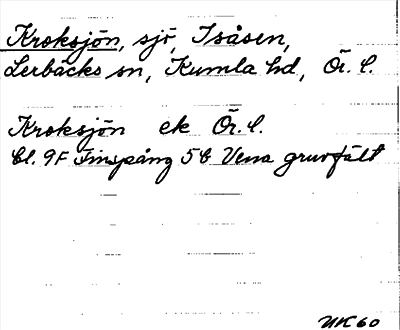 Kroksjön, sjö, Isåsen,
Lerbäcks sn, Kumla hd, Ör. l.
Kroksjön ek Ör. l.
Bl. 9F Finspång 5 C Vena gruvfält
NK 60